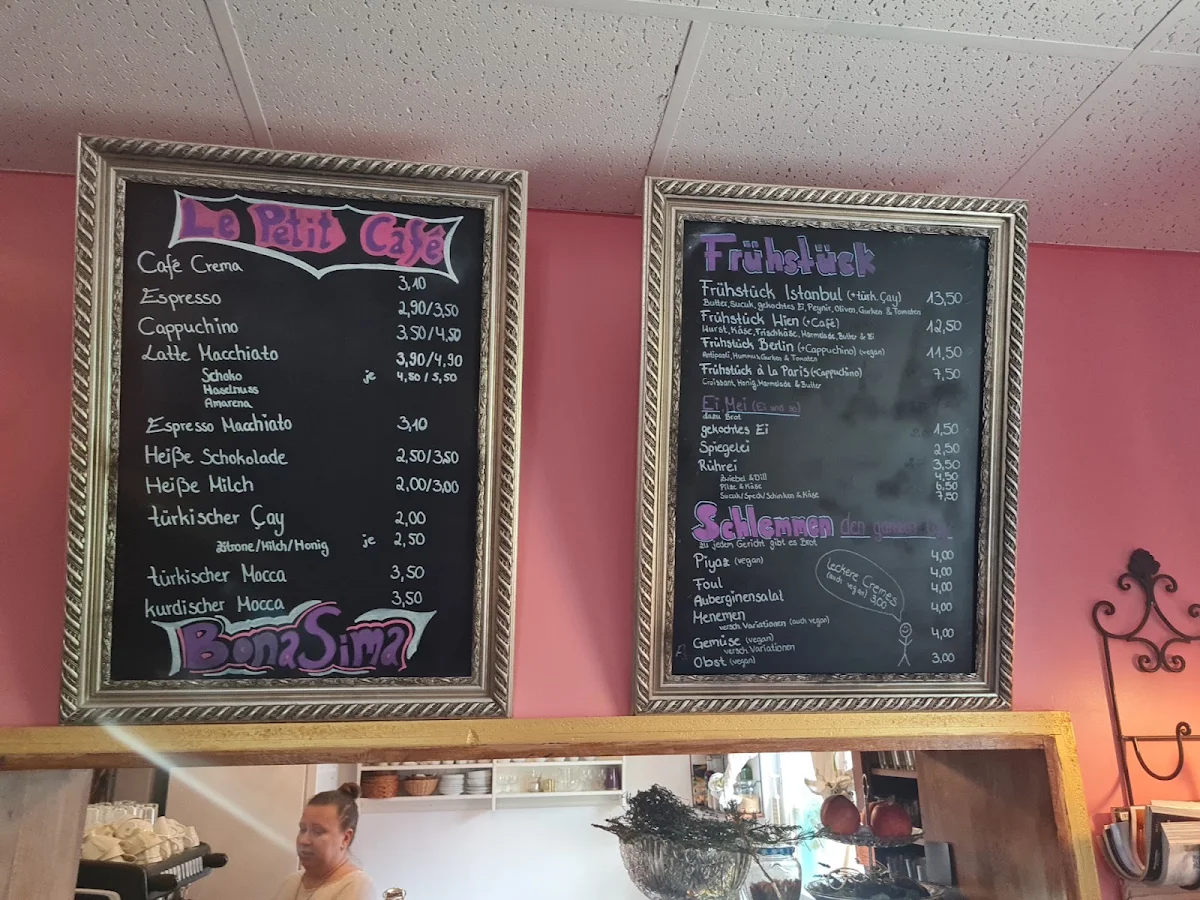 Le Petit Café
Café Crema 3,10
Espresso 2,90/3,50
Cappuchino 3,50/4,50
Latte Macchiato 3,90/4,90
Schoko je 4,50/5,50
Haselnuss
Amarena
Espresso Macchiato 3,10
Heiße Schokolade 2,50/3,50
Heiße Milch 2,00/3,00
türkischer Çay 2,00
Zitrone/Milch/Honig je 2,50
türkischer Mocca 3,50
kurdischer Mocca 3,50
BonaSima
Frühstück
Frühstück Istanbul (+türk. Çay) 13,50
Butter, Sucuk, gekochtes Ei, Peynir, Oliven, Gurken & Tomaten
Frühstück Wien (+Café) 12,50
Wurst, Käse, Frischkäse, Marmelade, Butter & Ei
Frühstück Berlin (+Cappuchino) (vegan) 11,50
Antipasti, Hummus, Gurken & Tomaten
Frühstück à la Paris (+Cappuchino) 7,50
Croissant, Honig, Marmelade & Butter
Ei Mei (Ei und so)
dazu Brot
gekochtes Ei 1,50
Spiegelei 2,50
Rührei 3,50
Zwiebel & Dill 4,50
Pilze & Käse 6,50
Sucuk/Speck/Schinken & Käse 7,50
Schlemmen den ganzen
zu jedem Gericht gibt es Brot
Piyaz (vegan) 4,00
Foul 4,00
Auberginensalat 4,00
Menemen 4,00
versch. Variationen (auch vegan)
Gemüse (vegan) 4,00
versch. Variationen
Obst (vegan) 3,00
Leckere Cremes
(auch vegan)
3,00